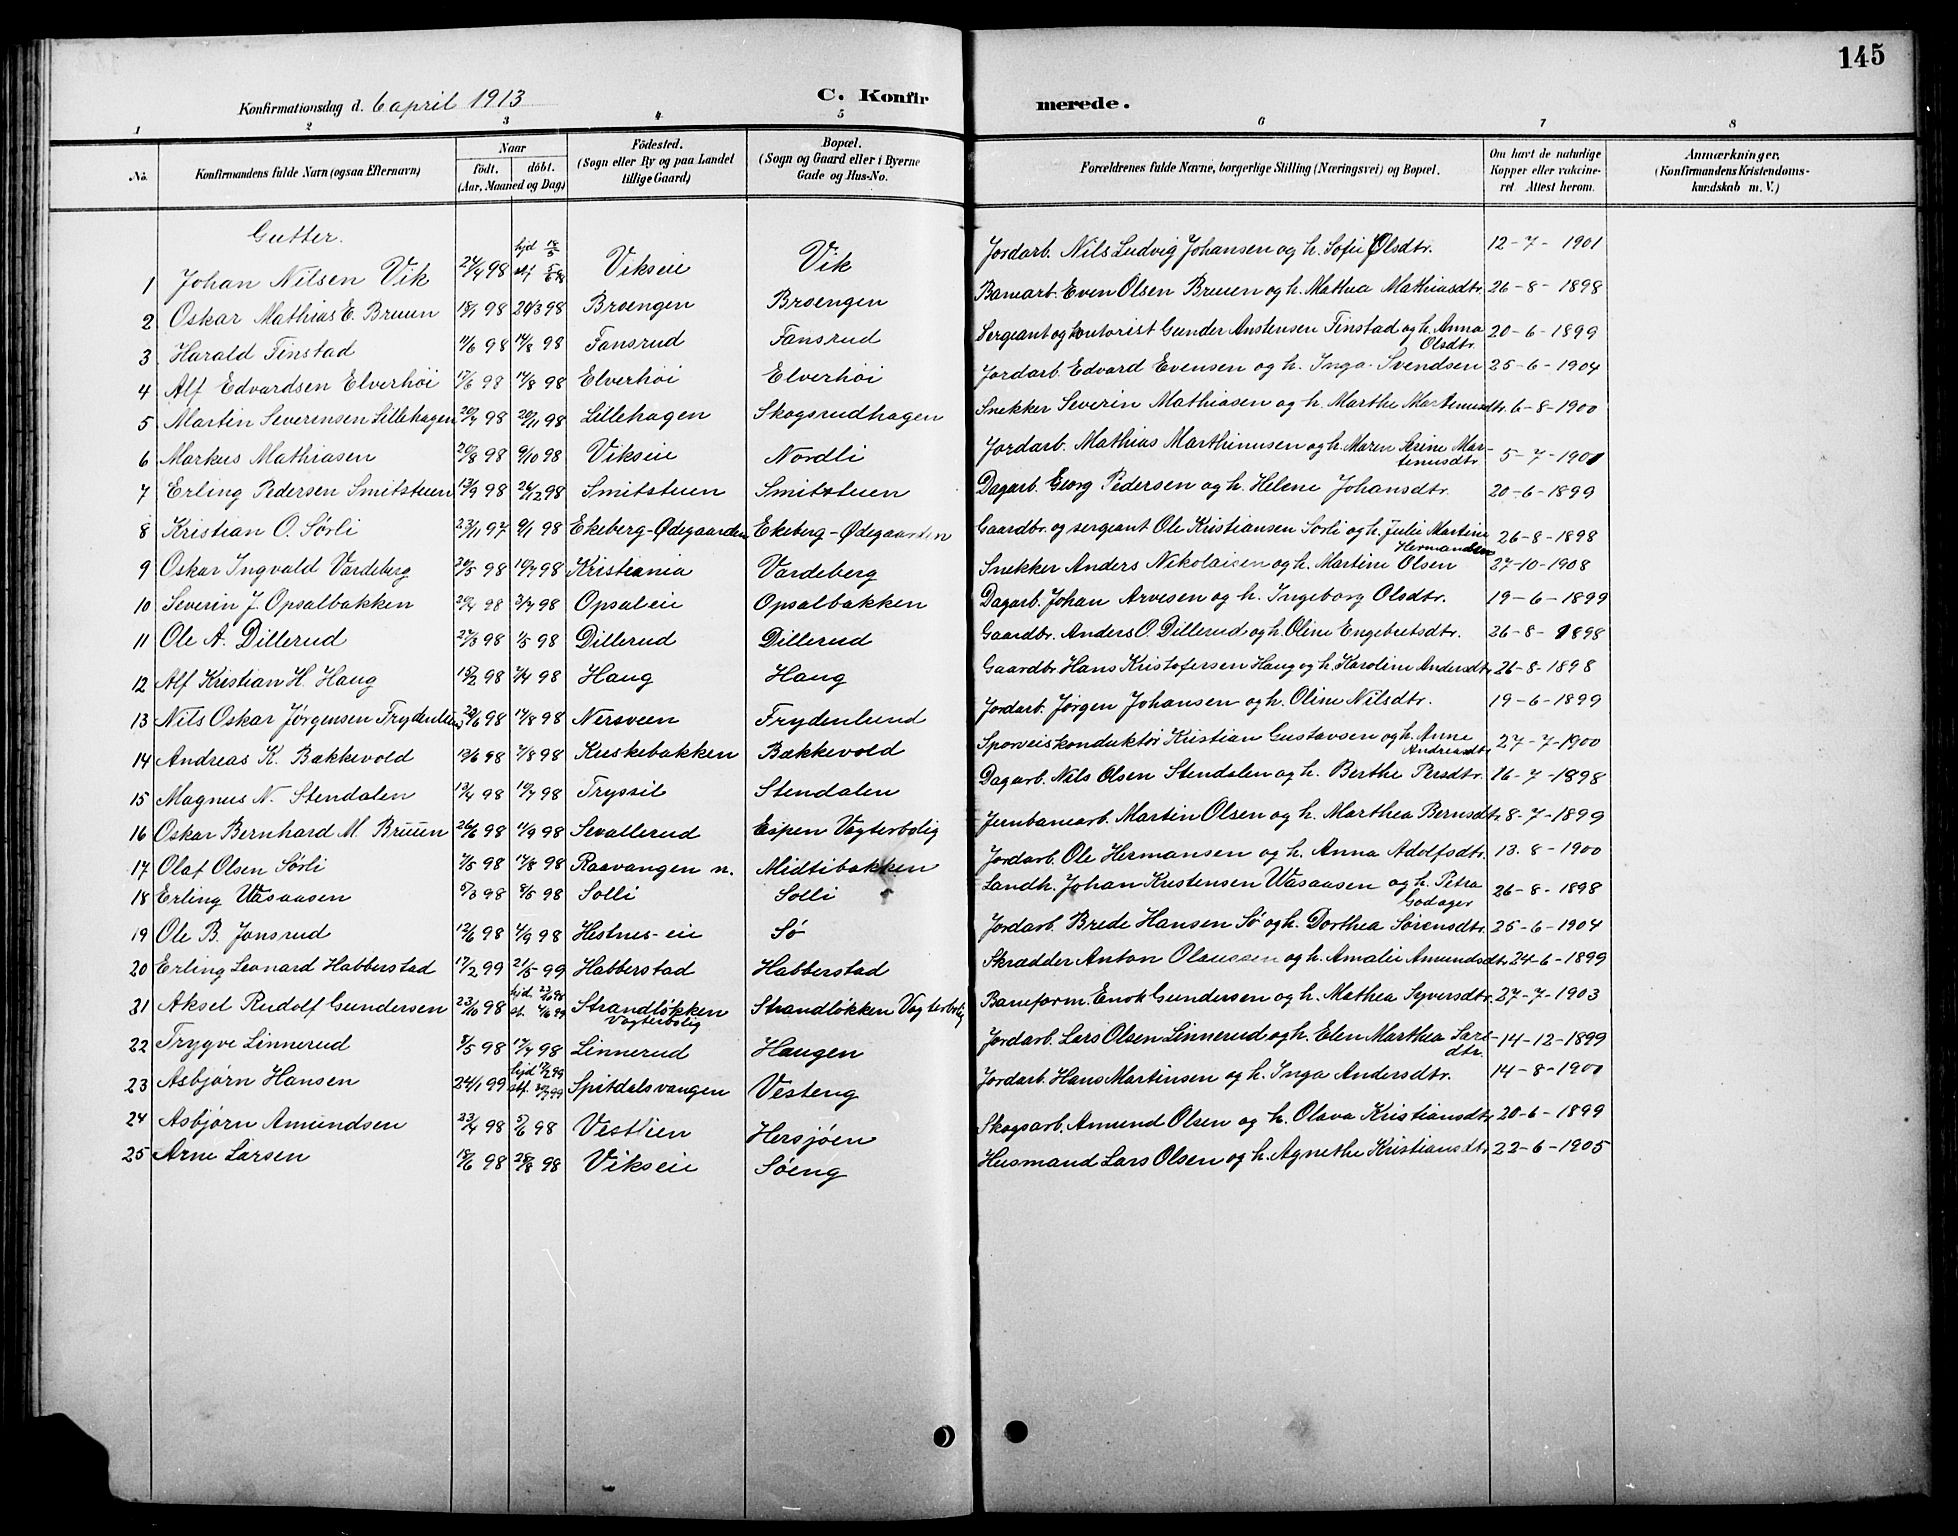 145
Konfirmationsdag d. 6 april 1913 C. Konfirmerede.
1 2 3 4 5 6 7 8
No. Konfirmandens fulde Navn (ogsaa Efternavn) Naar født. døbt. (Aar, Maaned og Dag) Fødested. (Sogn eller By og paa Landet tillige Gaard) Bopæl. (Sogn og Gaard eller i Byerne Gade og Hus-No. Forældrenes fulde Navne, borgerlige Stilling (Næringsvei) og Bopæl. Om havt de naturlige Kopper eller vakcineret Attest herom. Anmærkninger. (Konfirmandens Kristendomskundskab m. V.)
Gutter.
1 Johan Nilsen Vik 24/4 98 hjd Vikseie Vik Jordarb. Nils Ludvig Johansen og h. Sofie Olsdtr. 12-7-1901
2 Oskar Mathias E. Bruun 18/1 98 20/3 98 Broengen Broengen Banearb. Even Olsen Bruun og h. Mathea Mathiasdtr. 26-8-1898
3 Harald Finstad 11/6 98 14/8 98 Fansrud Fansrud Sergeant og kontorist Gunder Anstensen Finstad og h. Anna Olsdtr. 20-6-1899
4 Alf Edvardsen Elverhöi 17/6 98 14/8 98 Elverhöi Elverhöi Jordarb. Edvard Evensen og h. Inga Svendsen 25-6-1904
5 Martin Severensen Lillehagen 20/7 98 20/11 98 Lillehagen Skogsrudhagen Snekker Severin Mathiasen og h. Marthe Martinusdtr. 6-8-1900
6 Markus Mathiasen 20/8 98 9/10 98 Vikseie Nordli Jordarb. Mathias Marthinusen og h. Maren Martinusdtr. 5-7-1901
7 Erling Pedersen Smitstuen 13/9 98 26/12 98 Smitstuen Smitstuen Dagarb. Georg Pedersen og h. Helene Johansdtr. 20-6-1899
8 Kristian O. Sörli 23/11 97 9/1 98 Ekeberg-Ødegaarden Ekeberg-Ødegaarden Gaardbr. og sergeant Ole Kristiansen Sorli og h. Julie Martine Hermansen 26-8-1898
9 Oskar Ingvald Vardeberg 20/5 98 10/7 98 Kristiania Vardeberg Snekker Anders Nikolaisen og h. Martine Olsen 27-10-1908
10 Severin J. Opsalbakken 20/4 98 3/7 98 Opsaleie Opsalbakken Dagarb. Johan Arvesen og h. Ingeborg Olsdtr. 19-6-1899
11 Ole A. Dillerud 27/3 98 1/5 98 Dillerud Dillerud Gaardbr. Anders O. Dillerud og h. Oline Engebretsdtr. 26-8-1898
12 Alf Kristian H. Haug 15/2 98 98 Haug Haug Gaardbr Hans Kristofersen Haug og h. Karoline Andersdtr. 26-8-1898
13 Nils Oskar Jørgensen Frydenlund 98 14/8 98 Nersveen Frydenlund Jordarb. Jørgen Johansen og h. Oline Nilsdtr. 19-6-1899
14 Andreas K. Bakkevold 12/6 98 7/8 98 Kuskebakken Bakkevold Sporveiskonduktør Kristian Gustavsen og h. Anne Andreasdtr. 27-7-1900
15 Magnus N. Stendalen 13/4 98 10/7 98 Trysil Stendalen Dagarb. Nils Olsen Stendalen og h. Berthe Persdtr. 16-7-1898
16 Oskar Bernhard M. Bruun 26/6 98 11/9 98 Sevallerud Espen Vogterbolig Jernbanearb. Martin Olsen og h. Marthea Bernsdtr. 8-7-1899
17 Olaf Olsen Sörli 98 98 Raavangen n. Midtibakken Jordarb. Ole Hermansen og h. Anna Adolfsdtr. 13.8-1900
18 Erling Wasaasen 5/3 98 98 Solli Solli Landh. Johan Kristensen Wasaasen og h. Petra Godager 26-8-1898
19 Ole B. Jonsrud 12/6 98 4/9 98 Hestnes-eie Sø Jordarb. Brede Hansen Sø og h. Dorthea Sørensdtr. 25-6-1904
20 Erling Leonard Habberstad 17/2 99 21/5 99 Habberstad Habberstad Skrædder Anton Olaussen og h. Amalie Amundsdtr. 24-6-1899
21 Aksel Rudolf Gundersen 23/10 98 hjd. Strandløkken Vogterbolig Strandløkken Vogterbolig Baneform. Enok Gundersen og h. Mathea Syversdtr. 27-7-1903
22 Trygve Linnerud 8/5 98 17/7 98 Linnerud Haugen Jordarb. Lars Olsen Linnerud og h. Elen Marthea Larsdtr. 14-12-1899
23 Asbjørn Hansen 24/1 99 hjd Spitdalsvangen Vesteng Jordarb. Hans Martinsen og h. Inga Andersdtr. 14-8-1900
24 Asbjørn Amundsen 23/4 98 5/6 98 Vestlien Hersjøen Skogsarb. Amund Olsen og h. Olava Kristiansdtr. 20-6-1899
25 Arne Larsen 18/6 98 28/8 98 Vikseie Söeng Husmand Lars Olsen og h. Agnethe Kristiansdtr. 22-6-1905